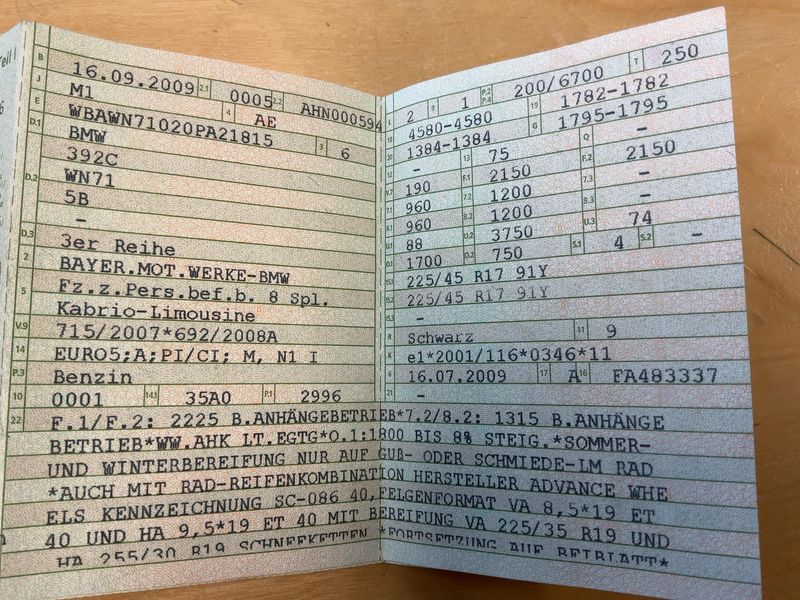 Teil I
B 16.09.2009 2.1 0005 2.2 AHN000594
J M1 4 AE
E WBAWN71020PA21815 3 6
D.1 BMW
392C
D.2 WN71
5B
–
D.3 3er Reihe
2 BAYER.MOT.WERKE-BMW
5 Fz.z.Pers.bef.b. 8 Spl.
Kabrio-Limousine
V.9 715/2007*692/2008A
14 EURO5;A;PI/CI; M, N1 I
P.3 Benzin
10 0001 14.1 35A0 P.1 2996
L 2 9 1 P.2 P.4 200/6700 T 250
18 4580-4580 19 1782-1782
20 1384-1384 G 1795-1795
12 – 13 75 Q –
V.7 190 F.1 2150 F.2 2150
7.1 960 7.2 1200 7.3 –
8.1 960 8.2 1200 8.3 –
U.1 88 U.2 3750 U.3 74
O.1 1700 O.2 750 S.1 4 S.2 –
15.1 225/45 R17 91Y
15.2 225/45 R17 91Y
15.3 –
R Schwarz 11 9
K e1*2001/116*0346*11
6 16.07.2009 17 A 16 FA483337
21 –
22 F.1/F.2: 2225 B.ANHÄNGEBETRIEB*7.2/8.2: 1315 B.ANHÄNGE
BETRIEB*WW.AHK LT.EGTG*O.1:1800 BIS 8% STEIG.*SOMMER-
UND WINTERBEREIFUNG NUR AUF GUß- ODER SCHMIEDE-LM RAD
*AUCH MIT RAD-REIFENKOMBINATION HERSTELLER ADVANCE WHE
ELS KENNZEICHNUNG SC-086 40,FELGENFORMAT VA 8,5*19 ET
40 UND HA 9,5*19 ET 40 MIT BEREIFUNG VA 225/35 R19 UND
HA 255/30 R19 SCHNEEKETTEN *FORTSETZUNG AUF BEIBLATT*